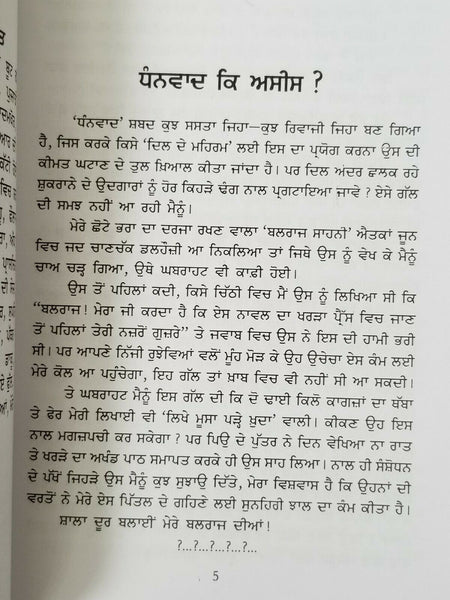 ਧੰਨਵਾਦ ਕਿ ਅਸੀਸ ?
'ਧੰਨਵਾਦ' ਸ਼ਬਦ ਕੁਝ ਸਸਤਾ ਜਿਹਾ—ਕੁਝ ਰਿਵਾਜੀ ਜਿਹਾ ਬਣ ਗਿਆ
ਹੈ, ਜਿਸ ਕਰਕੇ ਕਿਸੇ 'ਦਿਲ ਦੇ ਮਹਿਰਮ' ਲਈ ਇਸ ਦਾ ਪ੍ਰਯੋਗ ਕਰਨਾ ਉਸ ਦੀ
ਕੀਮਤ ਘਟਾਣ ਦੇ ਤੁਲ ਖ਼ਿਆਲ ਕੀਤਾ ਜਾਂਦਾ ਹੈ। ਪਰ ਦਿਲ ਅੰਦਰ ਛਾਲਕ ਰਹੇ
ਸ਼ੁਕਰਾਨੇ ਦੇ ਉਦਗਾਰਾਂ ਨੂੰ ਹੋਰ ਕਿਹੜੇ ਢੰਗ ਨਾਲ ਪ੍ਰਗਟਾਇਆ ਜਾਵੇ ? ਏਸੇ ਗੱਲ
ਦੀ ਸਮਝ ਨਹੀਂ ਆ ਰਹੀ ਮੈਨੂੰ।
ਮੇਰੇ ਛੋਟੇ ਭਰਾ ਦਾ ਦਰਜਾ ਰਖਣ ਵਾਲਾ 'ਬਲਰਾਜ ਸਾਹਨੀ' ਐਤਕਾਂ ਜੂਨ
ਵਿਚ ਜਦ ਚਾਣਚੱਕ ਡਲਹੌਜ਼ੀ ਆ ਨਿਕਲਿਆ ਤਾਂ ਜਿਥੇ ਉਸ ਨੂੰ ਵੇਖ ਕੇ ਮੈਨੂੰ
ਚਾਅ ਚੜ੍ਹ ਗਿਆ, ਉਥੇ ਘਬਰਾਹਟ ਵੀ ਕਾਫ਼ੀ ਹੋਈ।
ਉਸ ਤੋਂ ਪਹਿਲਾਂ ਕਦੀ, ਕਿਸੇ ਚਿੱਠੀ ਵਿਚ ਮੈਂ ਉਸ ਨੂੰ ਲਿਖਿਆ ਸੀ ਕਿ
"ਬਲਰਾਜ! ਮੇਰਾ ਜੀ ਕਰਦਾ ਹੈ ਕਿ ਇਸ ਨਾਵਲ ਦਾ ਖਰੜਾ ਪ੍ਰੈਸ ਵਿਚ ਜਾਣ
ਤੋਂ ਪਹਿਲਾਂ ਤੇਰੀ ਨਜ਼ਰੋਂ ਗੁਜ਼ਰੇ" ਤੇ ਜਵਾਬ ਵਿਚ ਉਸ ਨੇ ਇਸ ਦੀ ਹਾਮੀ ਭਰੀ
ਸੀ। ਪਰ ਆਪਣੇ ਨਿੱਜੀ ਰੁਝੇਵਿਆਂ ਵਲੋਂ ਮੂੰਹ ਮੋੜ ਕੇ ਉਹ ਉਚੇਚਾ ਏਸ ਕੰਮ ਲਈ
ਮੇਰੇ ਕੋਲ ਆ ਪਹੁੰਚੇਗਾ, ਇਹ ਗੱਲ ਤਾਂ ਖ਼ਾਬ ਵਿਚ ਵੀ ਨਹੀਂ ਸੀ ਆ ਸਕਦੀ।
ਤੇ ਘਬਰਾਹਟ ਮੈਨੂੰ ਇਸ ਗੱਲ ਦੀ ਕਿ ਦੋ ਢਾਈ ਕਿਲੋ ਕਾਗਜ਼ਾਂ ਦਾ ਥੱਬਾ
ਤੇ ਫੇਰ ਮੇਰੀ ਲਿਖਾਈ ਵੀ 'ਲਿਖੇ ਮੂਸਾ ਪੜ੍ਹੇ ਖ਼ੁਦਾ' ਵਾਲੀ। ਕੀਕਣ ਉਹ ਇਸ
ਨਾਲ ਮਗਜ਼ਪਚੀ ਕਰ ਸਕੇਗਾ ? ਪਰ ਪਿਉ ਦੇ ਪੁੱਤਰ ਨੇ ਦਿਨ ਵੇਖਿਆ ਨਾ ਰਾਤ
ਤੇ ਖਰੜੇ ਦਾ ਅਖੰਡ ਪਾਠ ਸਮਾਪਤ ਕਰਕੇ ਹੀ ਉਸ ਸਾਹ ਲਿਆ। ਨਾਲ ਹੀ ਸੰਸ਼ੋਧਨ
ਦੇ ਪੱਖੋਂ ਜਿਹੜੇ ਉਸ ਮੈਨੂੰ ਕੁਝ ਸੁਝਾਉ ਦਿੱਤੇ, ਮੇਰਾ ਵਿਸ਼ਵਾਸ ਹੈ ਕਿ ਉਹਨਾਂ ਦੀ
ਵਰਤੋਂ ਨੇ ਮੇਰੇ ਏਸ ਪਿੱਤਲ ਦੇ ਗਹਿਣੇ ਲਈ ਸੁਨਹਿਰੀ ਝਾਲ ਦਾ ਕੰਮ ਕੀਤਾ ਹੈ।
ਸ਼ਾਲਾ ਦੂਰ ਬਲਾਈਂ ਮੇਰੇ ਬਲਰਾਜ ਦੀਆਂ!
?...?...?...?...?...
5